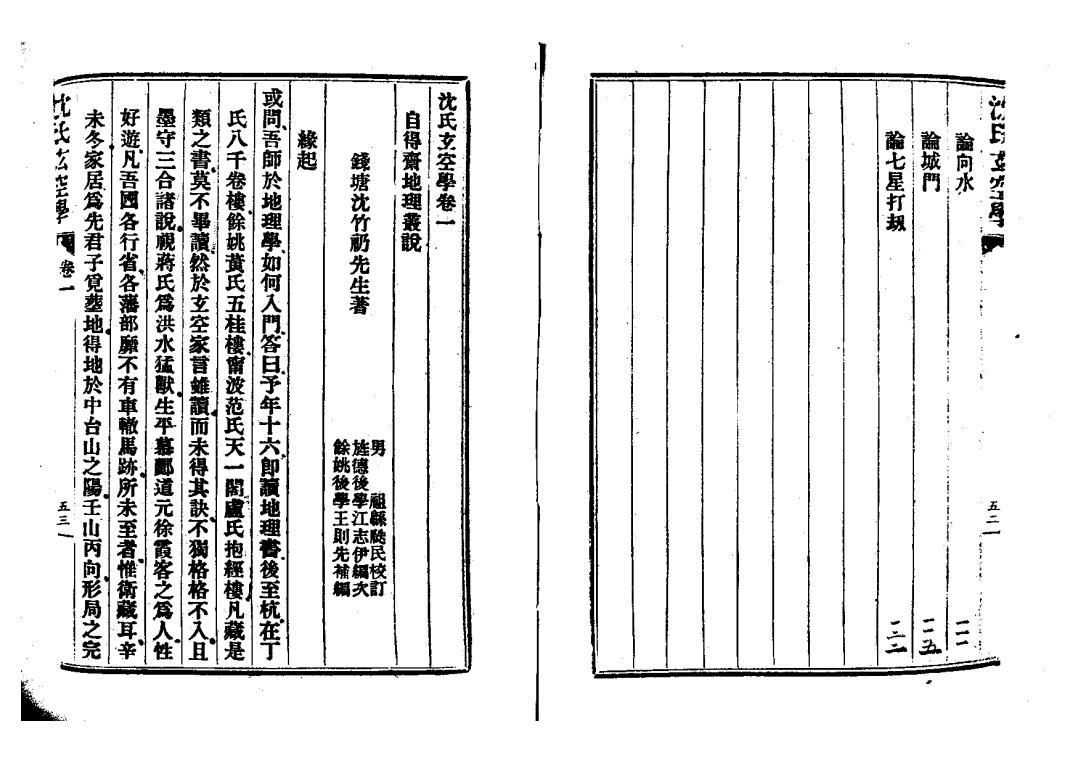 沈氏玄空學
論向水 二一一
論城門 二一五
論七星打刼 二二二
五二
沈氏玄空學卷一
自得齋地理叢說
錢塘沈竹礽先生著
男 祖緜瓞民校訂
旌德後學江志伊編次
餘姚後學王則先補編
緣起
或問、吾師於地理學、如何入門、答曰、予年十六、卽讀地理書、後至杭、在丁
氏八千卷樓、餘姚黃氏五桂樓、甯波范氏天一閣、盧氏抱經樓、凡藏是
類之書、莫不畢讀、然於玄空家言雖讀而未得其訣、不獨格格不入、且
墨守三合諸說、視蔣氏爲洪水猛獸、生平慕酈道元徐霞客之爲人、性
好遊、凡吾國各行省、各藩部、靡不有車轍馬跡、所未至者、惟衛藏耳、辛
未冬、家居、爲先君子覓塟地、得地於中台山之陽、壬山丙向、形局之完
沈氏玄空學 卷一 五三